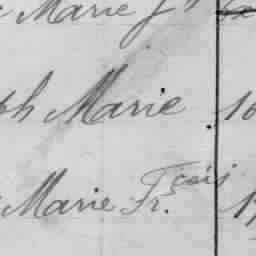 Marie Jh
ph Marie 10
Marie Fr.çois 17